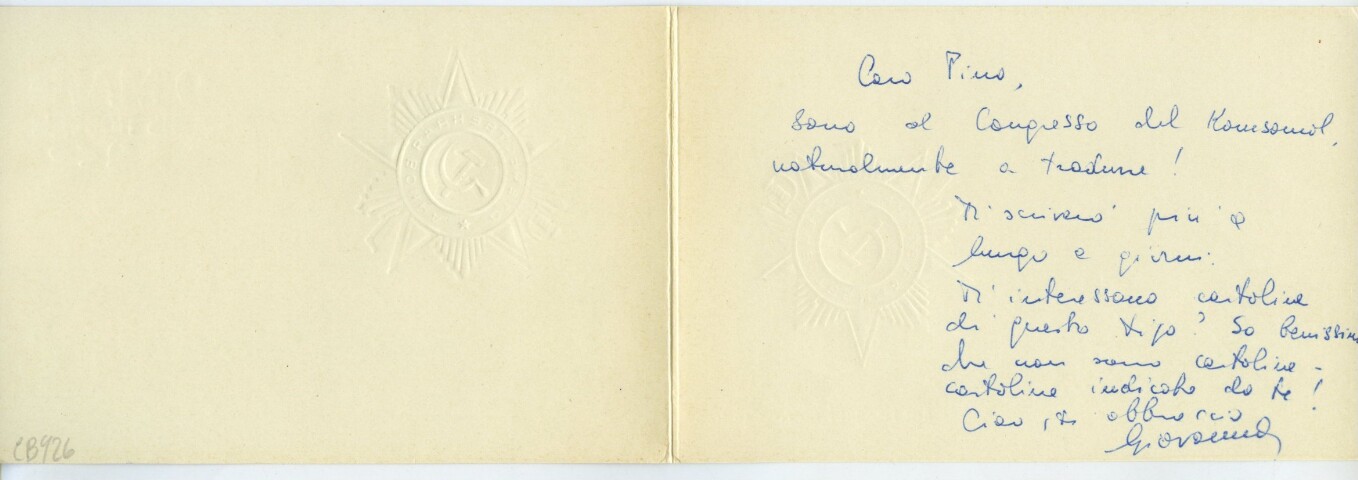 Caro Pino,
sono al Congresso del Komsomol,
naturalmente a tradurre!
Ti scriverò più a
lungo a giorni.
Ti interessano cartoline
di questo tipo? So benissim
che non sono cartoline -
cartoline indicate da te!
Ciao, ti abbraccio
Giovanna
CB426